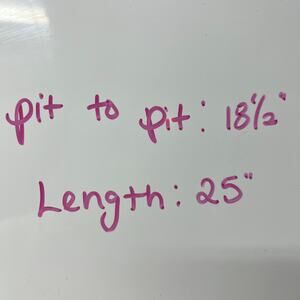 pit to pit: 18 1/2"
Length: 25"